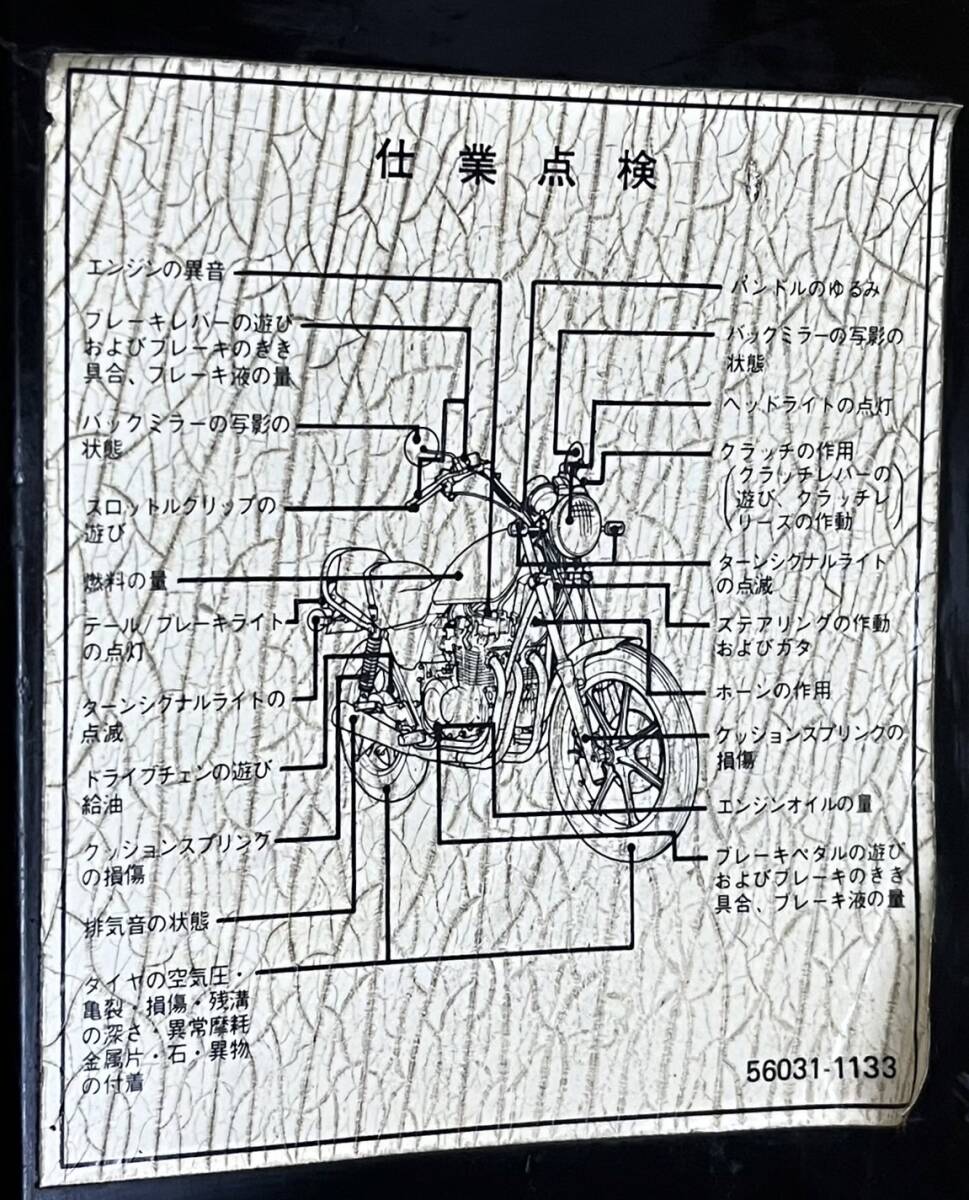 仕業点検
エンジンの異音
ブレーキレバーの遊び
およびブレーキのきき
具合、ブレーキ液の量
バックミラーの写影の
状態
スロットルグリップの
遊び
燃料の量
テール/ブレーキライト
の点灯
ターンシグナルライトの
点滅
ドライブチェンの遊び
給油
クッションスプリング
の損傷
排気音の状態
タイヤの空気圧・
亀裂・損傷・残溝
の深さ・異常摩耗
金属片・石・異物
の付着
ハンドルのゆるみ
バックミラーの写影の
状態
ヘッドライトの点灯
クラッチの作用
(クラッチレバーの
遊び、クラッチレ
リーズの作動)
ターンシグナルライト
の点滅
ステアリングの作動
およびガタ
ホーンの作用
クッションスプリングの
損傷
エンジンオイルの量
ブレーキペダルの遊び
およびブレーキのきき
具合、ブレーキ液の量
56031-1133